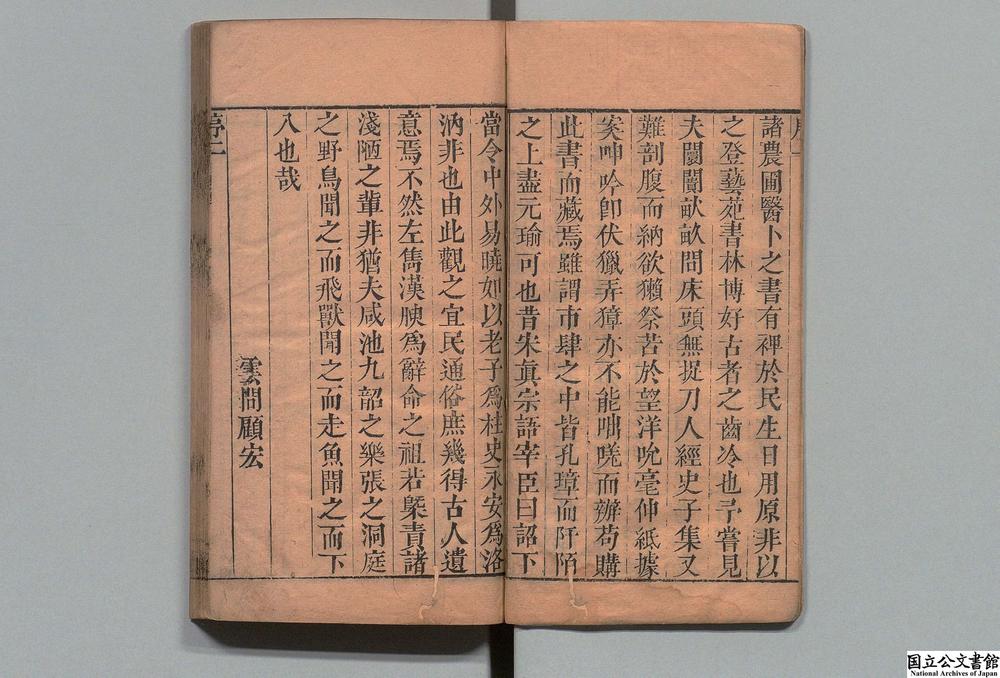 諸農圃醫卜之書有裨於民生日用原非以
之登藝苑書林博好古者之齒冷也予嘗見
夫闤闠畎畝問床頭無捉刀人經史子集又
難剖腹而納欲獺祭苦於望洋吮毫伸紙據
案呻吟卽伏獵弄獐亦不能咄嗟而辦苟購
此書而藏焉雖謂市肆之中皆孔璋而阡陌
之上盡元瑜可也昔朱眞宗語宰臣曰詔下
當令中外易曉如以老子爲柱史永安爲洛
汭非也由此觀之宜民通俗庶幾得古人遺
意焉不然左雋漢腴爲辭命之祖若槩責諸
淺陋之輩非猶夫咸池九韶之樂張之洞庭
之野鳥聞之而飛獸聞之而走魚聞之而下
入也哉
雲間顧宏
序二
国立公文書館
National Archives of Japan